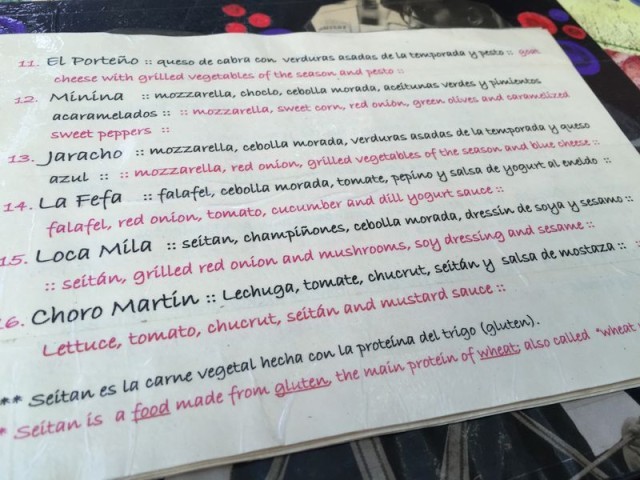 11. El Porteño :: queso de cabra con verduras asadas de la temporada y pesto :: goat
cheese with grilled vegetables of the season and pesto ::
12. Minina :: mozzarella, choclo, cebolla morada, aceitunas verdes y pimientos
acaramelados :: :: mozzarella, sweet corn, red onion, green olives and caramelized
sweet peppers ::
13. Jaracho :: mozzarella, cebolla morada, verduras asadas de la temporada y queso
azul :: :: mozzarella, red onion, grilled vegetables of the season and blue cheese ::
14. La Fefa :: falafel, cebolla morada, tomate, pepino y salsa de yogurt al eneldo ::
falafel, red onion, tomato, cucumber and dill yogurt sauce ::
15. Loca Mila :: seitan, champiñones, cebolla morada, dressin de soya y sesamo ::
:: seitán, grilled red onion and mushrooms, soy dressing and sesame ::
6. Choro Martín :: Lechuga, tomate, chucrut, seitán y salsa de mostaza :: :
Lettuce, tomato, chucrut, seitán and mustard sauce ::
** Seitan es la carne vegetal hecha con la proteína del trigo (gluten).
* Seitan is a food made from gluten, the main protein of wheat, also called "wheat